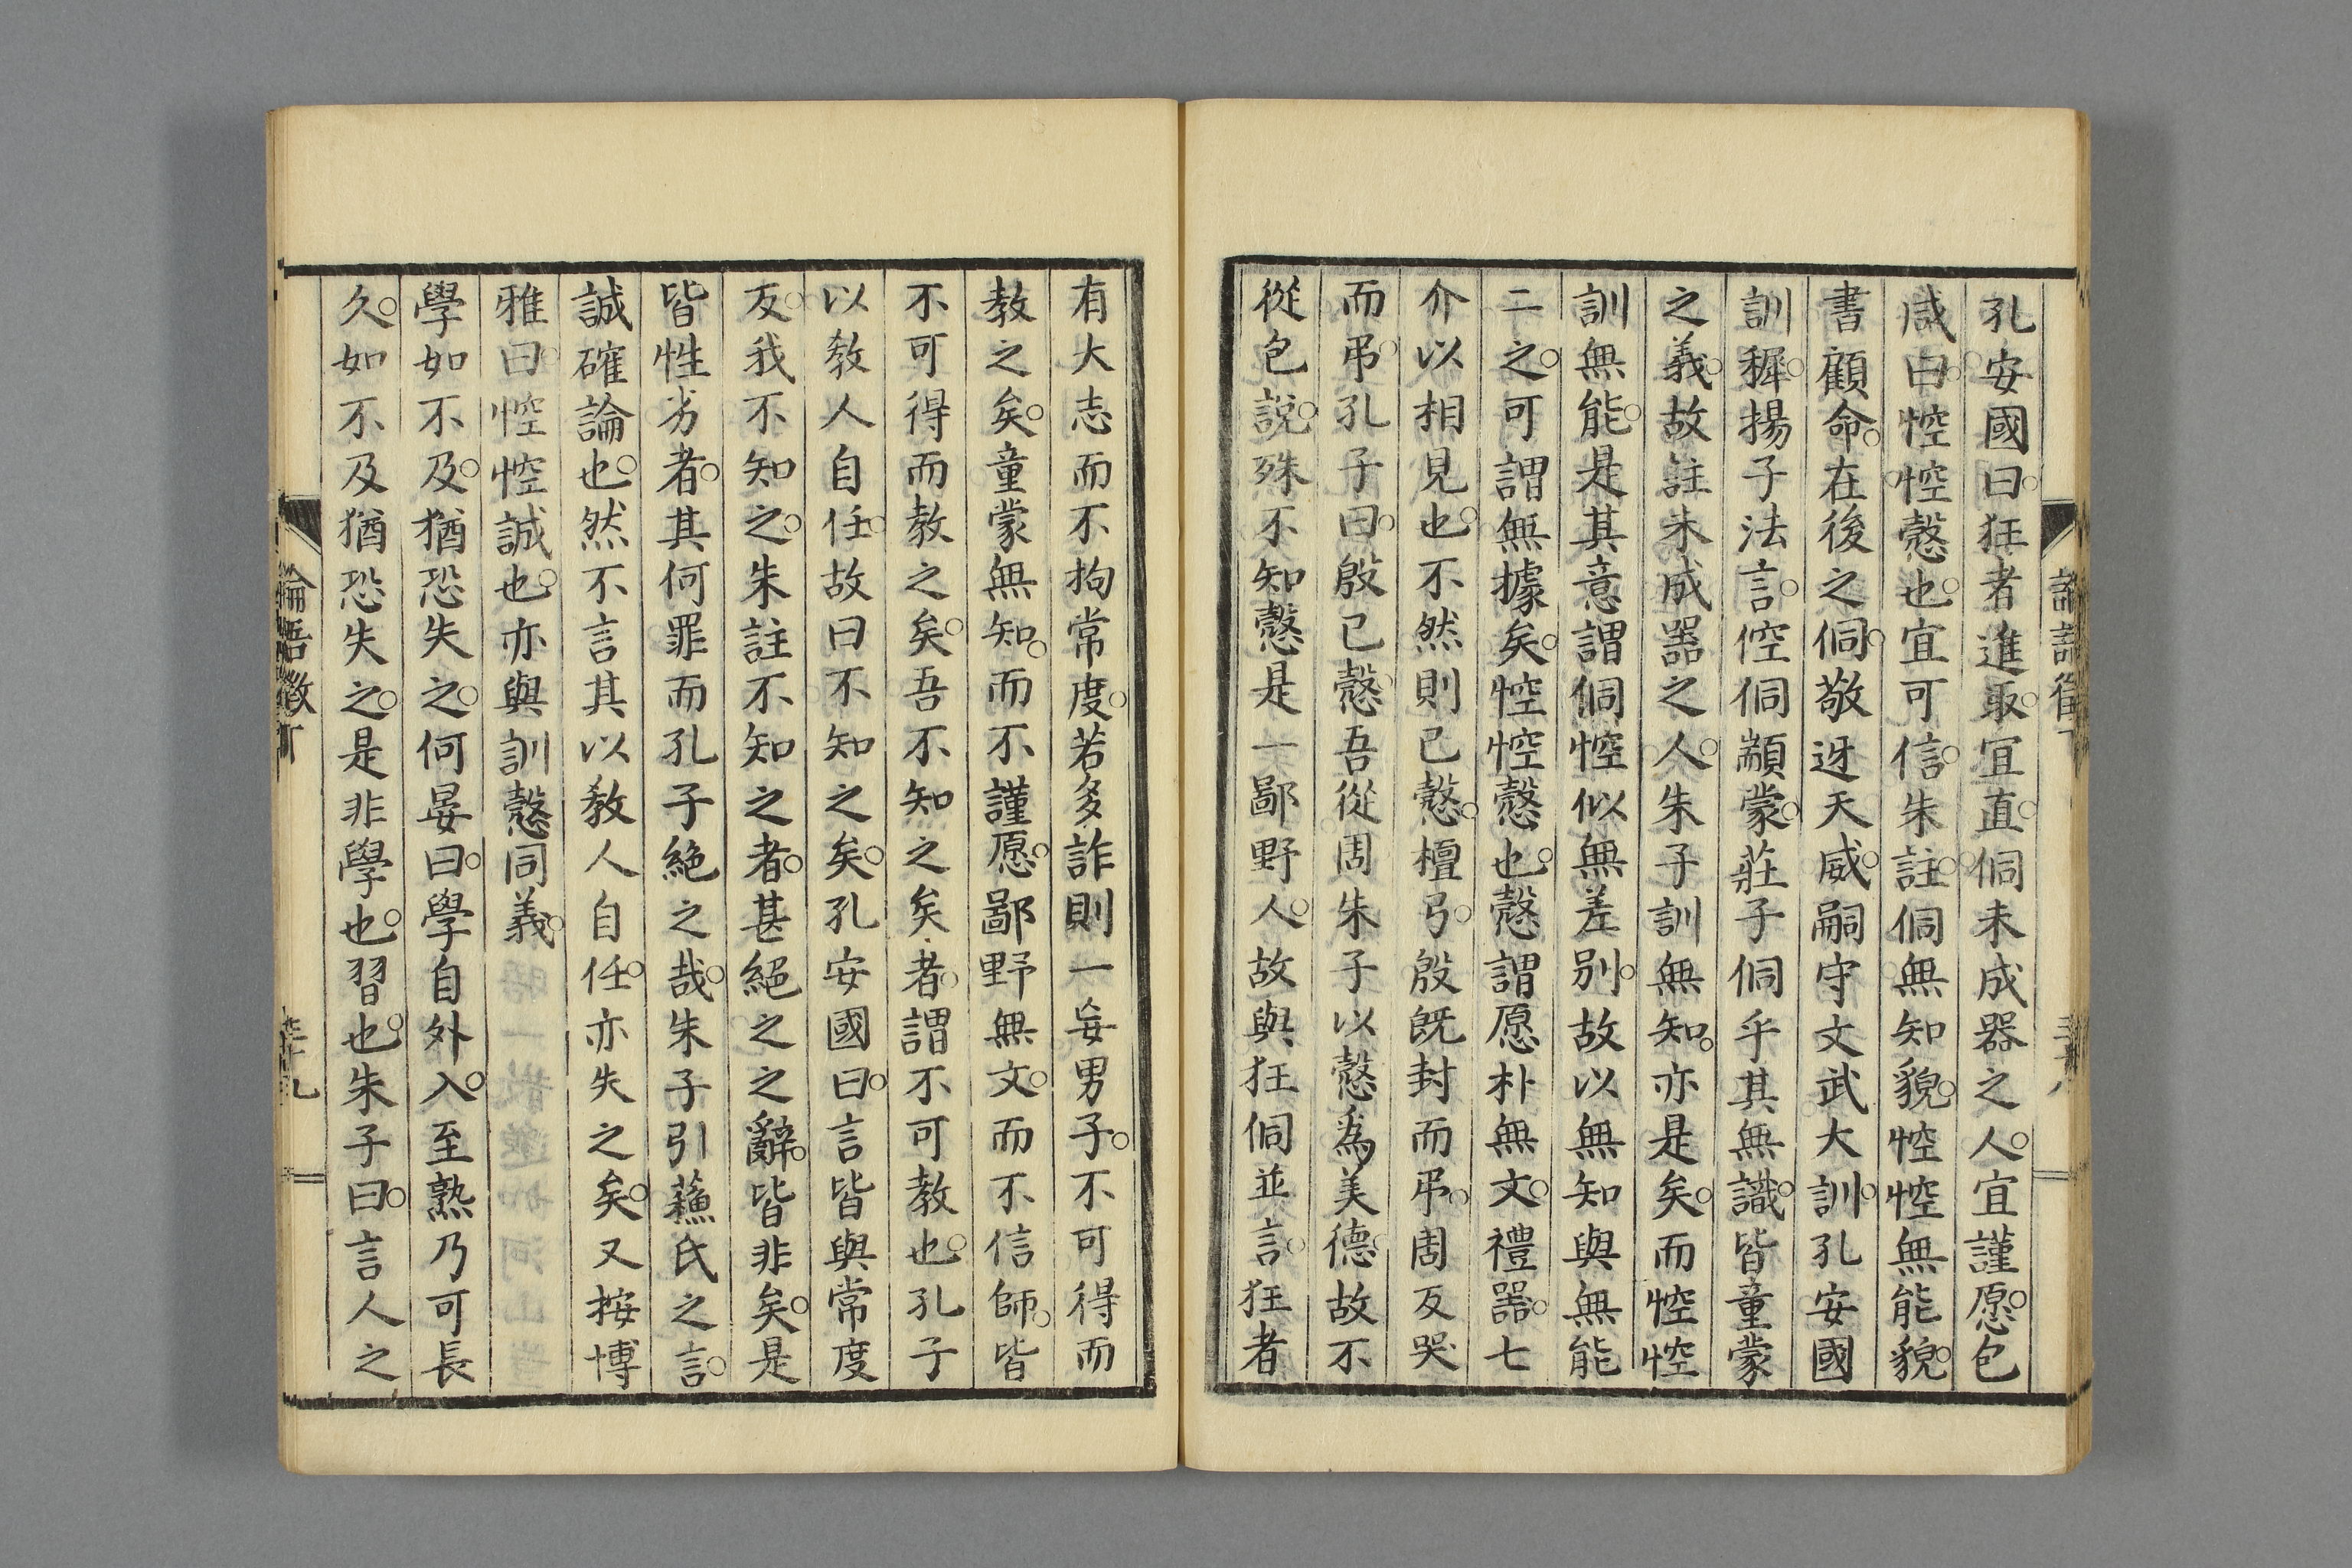 孔安國曰。狂者進取。宜直。侗未成器之人。宜謹愿。包
咸曰。悾悾愨也。宜可信。朱註。侗無知貌。悾悾無能貌。
書顧命。在後之侗。敬迓天威。嗣守文武大訓。孔安國
訓穉。揚子法言。倥侗顓蒙。莊子侗乎其無識。皆童蒙
之義。故註未成器之人。朱子訓無知。亦是矣。而悾悾
訓無能。是其意謂侗悾似無差別。故以無知與無能
二之。可謂無據矣。悾悾愨也。愨謂愿朴無文。禮器。七
介以相見也。不然則已愨。檀弓。殷既封而弔。周反哭
而弔。孔子曰。殷已愨。吾從周。朱子以愨為美德。故不
從包說。殊不知愨是一鄙野人。故與狂侗並言。狂者
有大志而不拘常度。若多詐則一妄男子。不可得而
教之矣。童蒙無知。而不謹愿。鄙野無文。而不信師。皆
不可得而教之矣。吾不知之矣者。謂不可教也。孔子
以教人自任。故曰不知之矣。孔安國曰。言皆與常度
反。我不知之。朱註不知之者。甚絕之之辭。皆非矣。是
皆性劣者。其何罪而孔子絕之哉。朱子引蘓氏之言。
誠確論也。然不言其以教人自任。亦失之矣。又按博
雅曰。悾悾誠也。亦與訓愨同義。
學如不及。猶恐失之。何晏曰。學自外入。至熟乃可長
久。如不及猶恐失之。是非學也。習也。朱子曰。言人之
論語徵丁